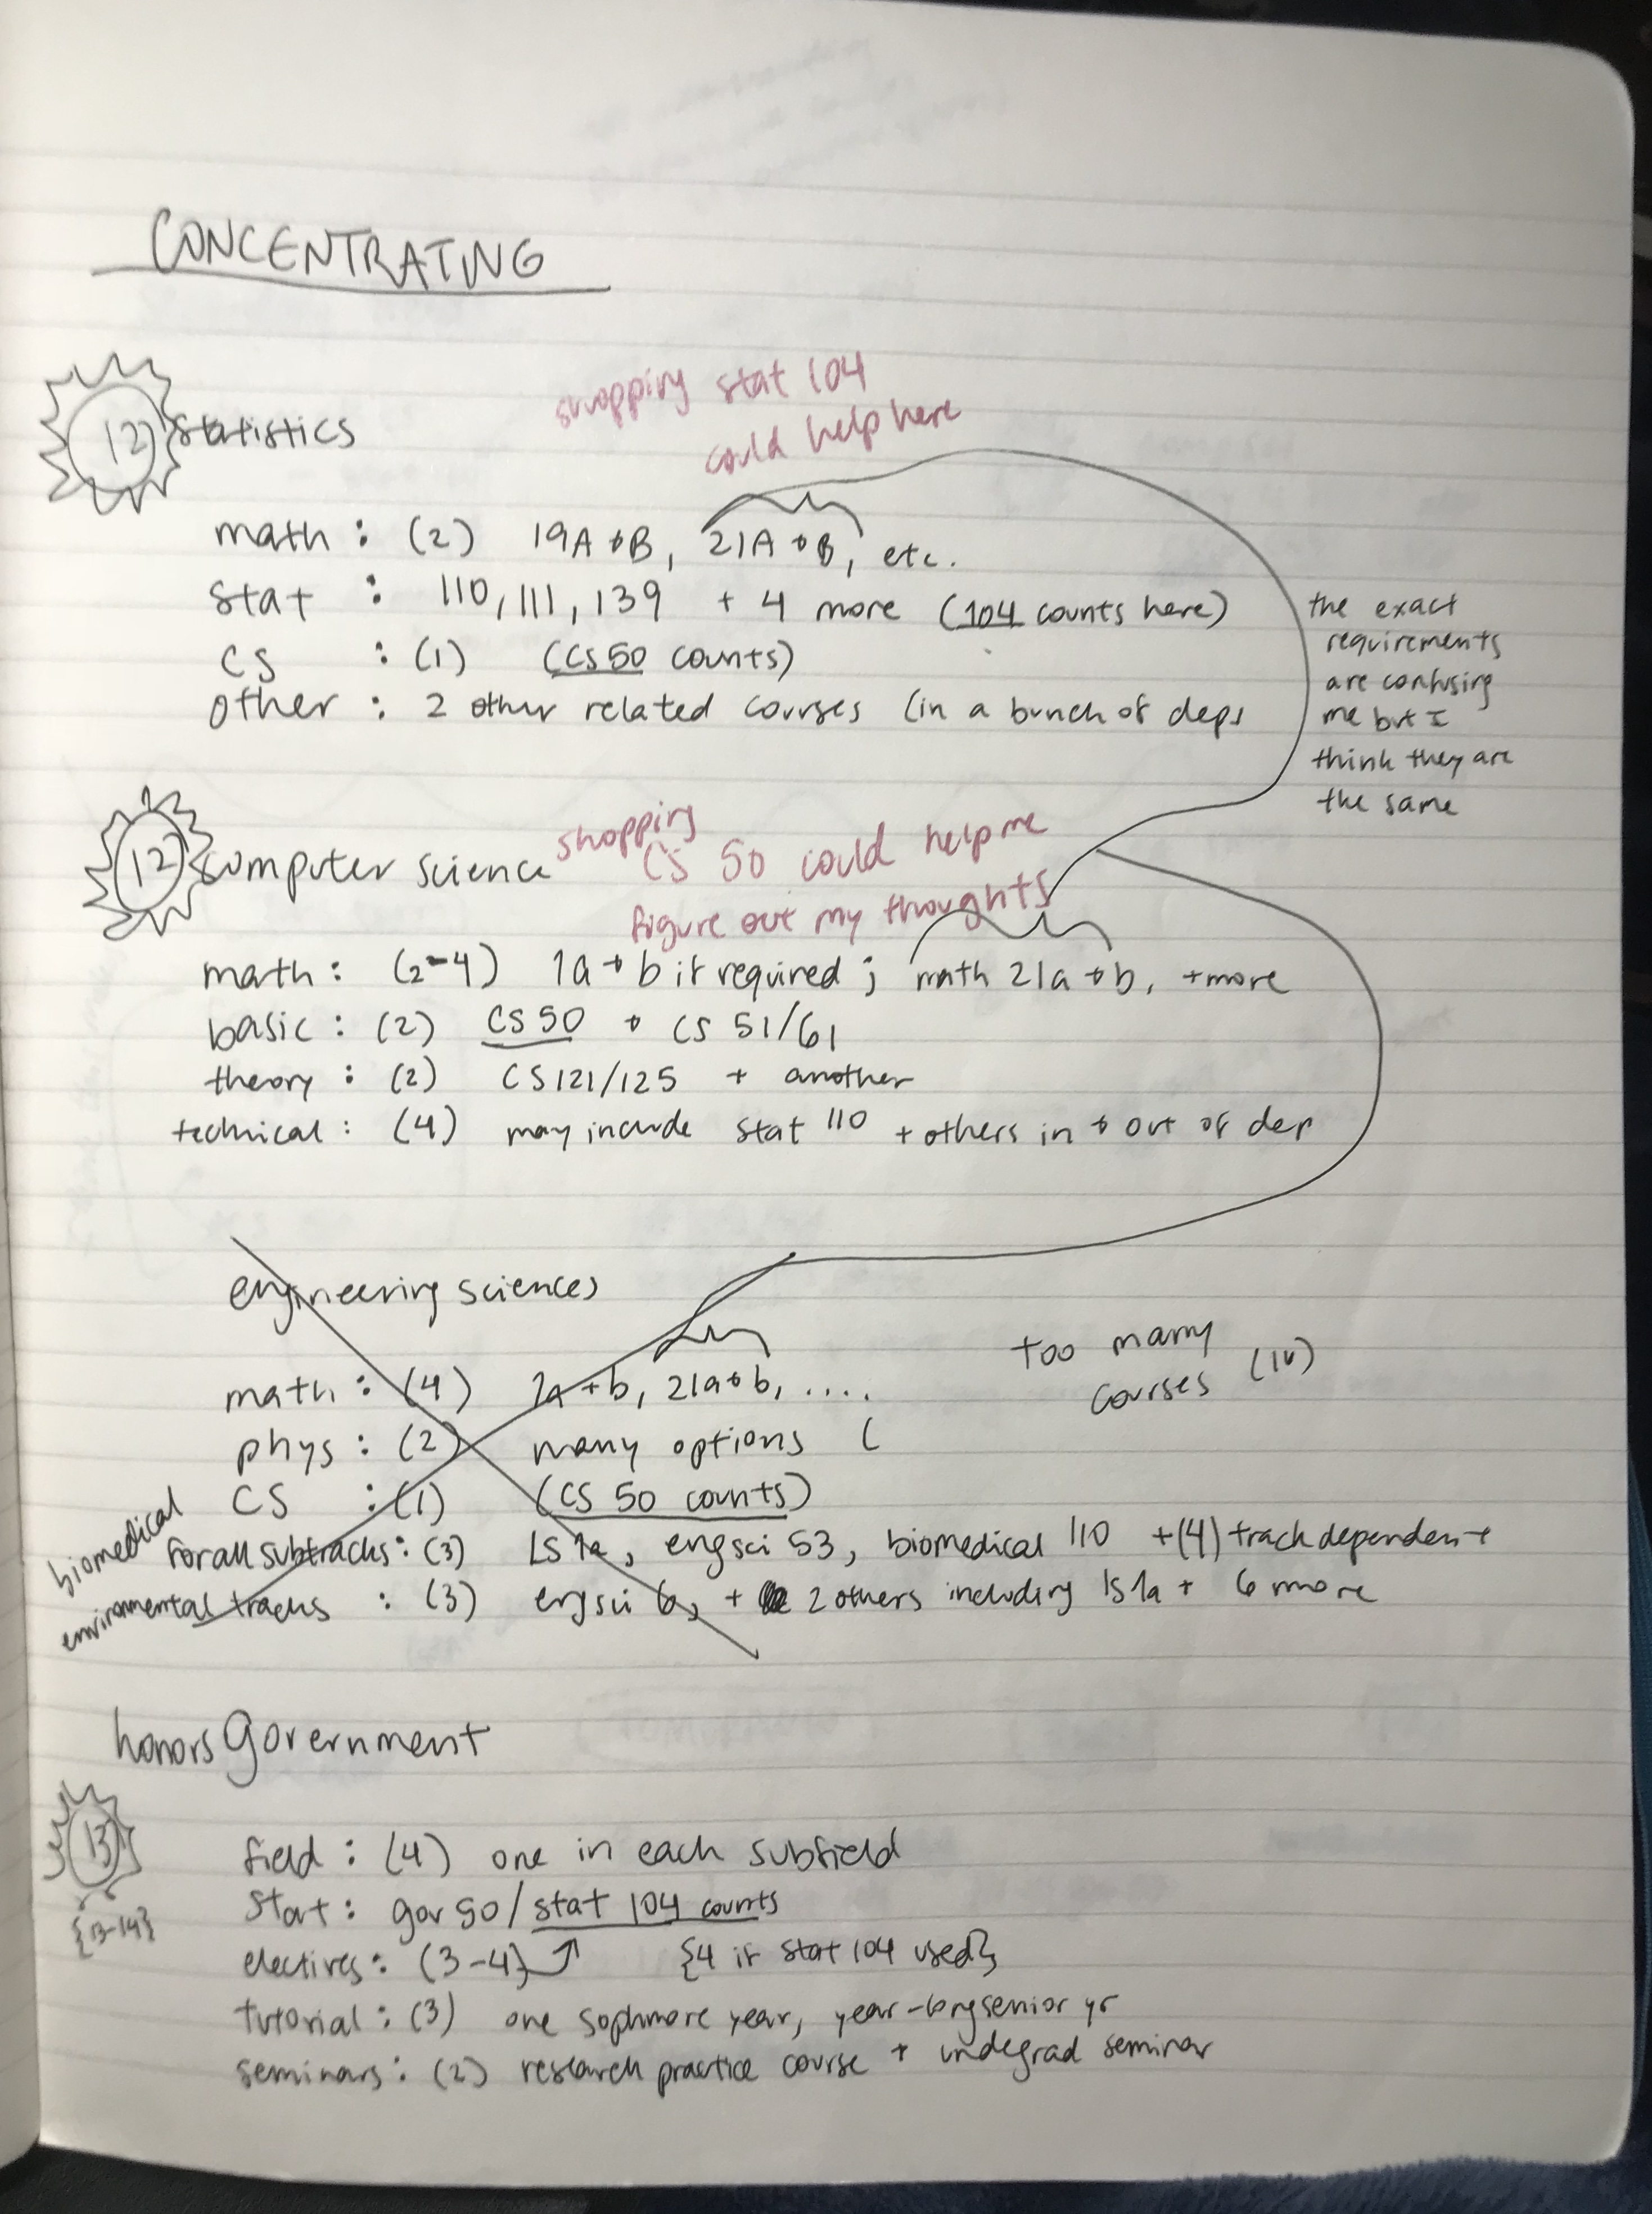 CONCENTRATING
shopping stat 104
could help here
12 statistics
math : (2) 19A + B, 21A + B, etc.
stat : 110, 111, 139 + 4 more (104 counts here)
CS : (1) (CS 50 counts)
other : 2 other related courses (in a bunch of deps
the exact
requirements
are confusing
me but I
think they are
the same
shopping
CS 50 could help me
figure out my thoughts
12 computer science
math : (2-4) 1a + b if required ; math 21a + b, + more
basic : (2) CS 50 + CS 51/61
theory : (2) CS 121/125 + another
technical : (4) may include stat 110 + others in + out of dep
engineering sciences
too many
courses
math : (4) 1a + b, 21a + b, ....
phys : (2) many options (
CS : (1) (CS 50 counts)
biomedical
for all subtracks : (3) LS 1a, engsci 53, biomedical 110 + (4) track dependent
environmental tracks : (3) engsci 6, + 2 others including ls 1a + 6 more
honors Government
13
{13-14}
field : (4) one in each subfield
stat : gov 50 / stat 104 counts
electives : (3-4) {4 if stat 104 used}
tutorial : (3) one sophmore year, year-long senior yr
seminars : (2) research practice course + undegrad seminar